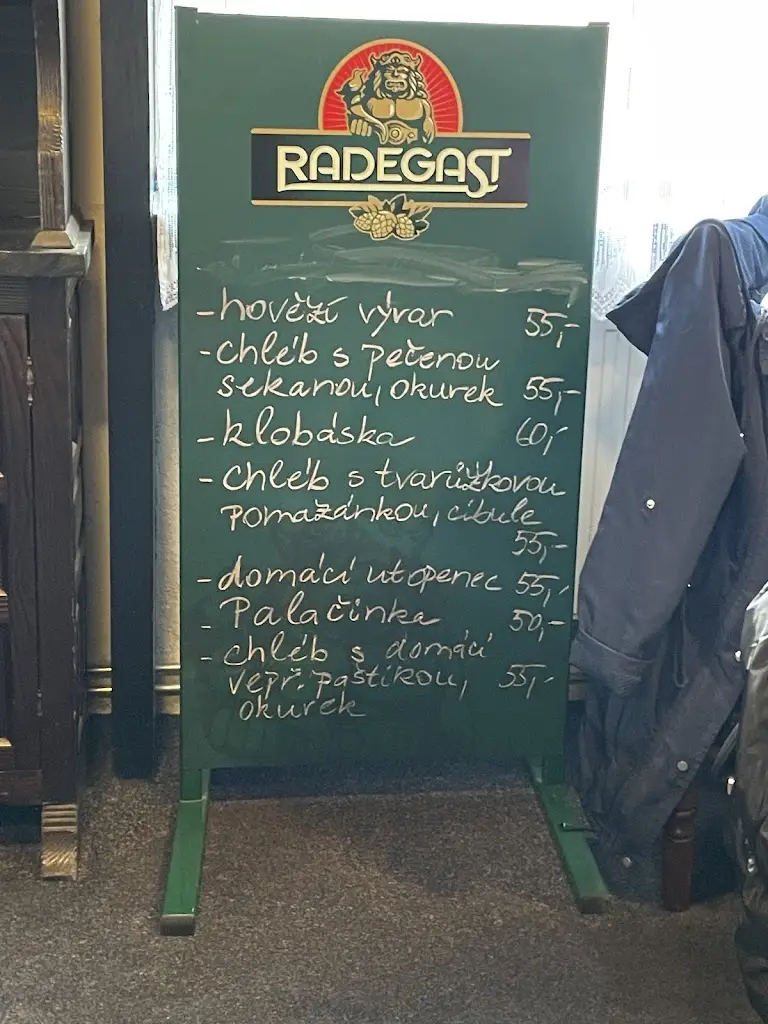 RADEGAST
- hovězí vývar 55,-
- chléb s pečenou
sekanou, okurek 55,-
- klobáska 60,-
- chléb s tvarůžkovou
pomazánkou, cibule
55,-
- domácí utopenec 55,-
- Palačinka 50,-
- chléb s domácí
vepř. paštikou, 55,-
okurek